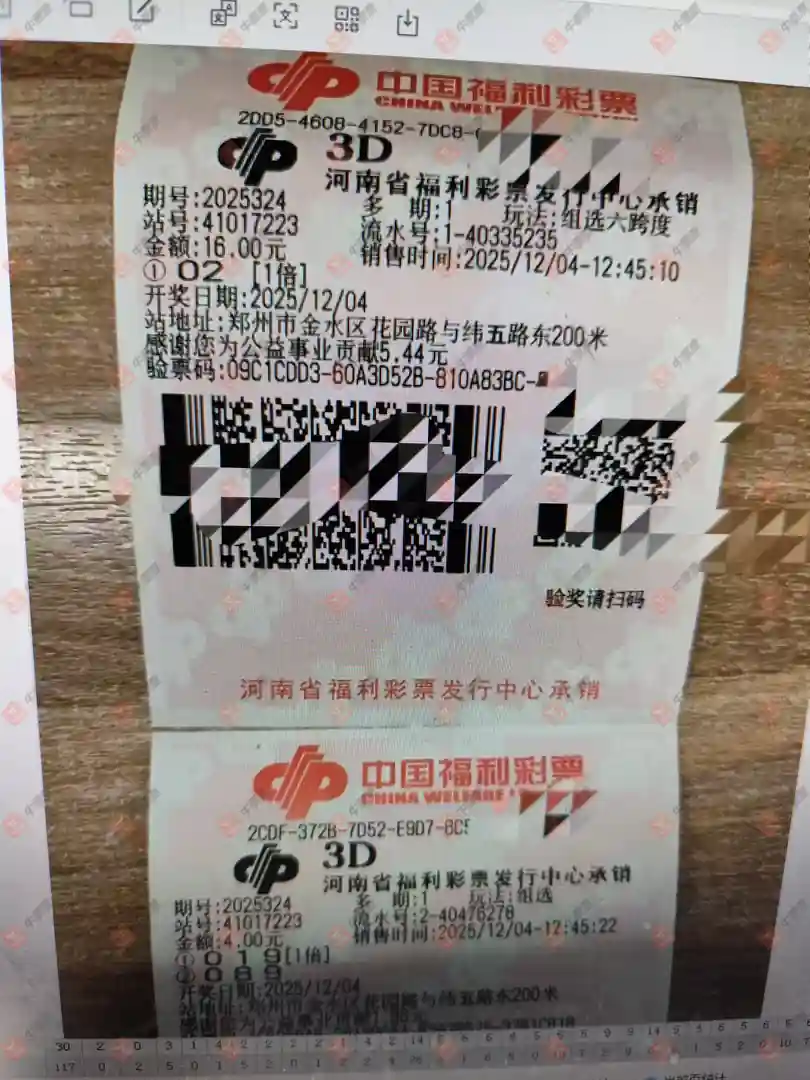 中国福利彩票
CHINA WEL
2DD5-4608-4152-7DC8-
3D
河南省福利彩票发行中心承销
期号:2025324 多 期:1 玩法:组选六跨度
站号:41017223 流水号:1-40335235
金额:16.00元 销售时间:2025/12/04-12:45:10
① 02 [1倍]
开奖日期:2025/12/04
站地址:郑州市金水区花园路与纬五路东200米
感谢您为公益事业贡献5.44元
验票码:09C1CDD3-60A3D52B-810A83BC-
验奖请扫码
河南省福利彩票发行中心承销
中国福利彩票
CHINA WELFARE
2CDF-372B-7D52-E9D7-
3D
河南省福利彩票发行中心承销
期号:2025324 多 期:1 玩法:组选
站号:41017223 流水号:2-40476278
金额:4.00元 销售时间:2025/12/04-12:45:22
① 019[1倍]
② 089
开奖日期:2025/12/04
站地址:郑州市金水区花园路与纬五路东200米